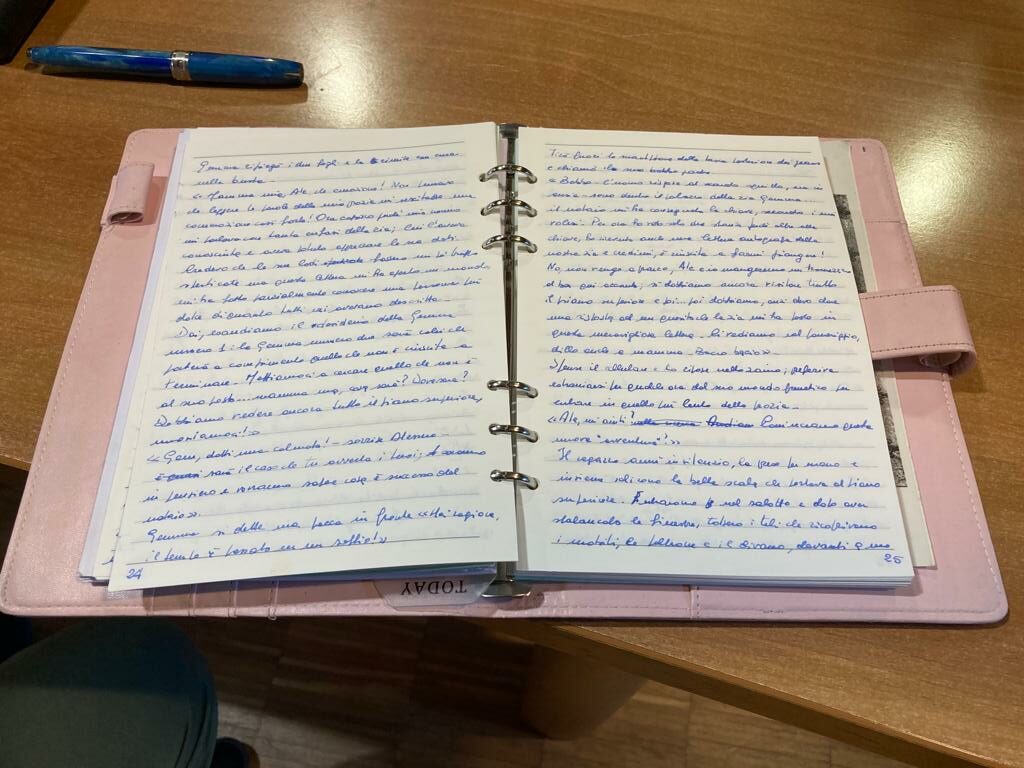 Gemma ripiegò i due fogli e le rimise con cura
nella busta.
« Mamma mia, Ale che emozione! Non pensavo
che leggere le parole della mia pozia mi suscitasse una
commozione così forte! Ora capisco perché mia nonna
mi parlava con tanta enfasi della zia; chi l'aveva
conosciuta e aveva potuto apprezzare le sue doti
credevo che le sue lodi fossero un po' troppo
sperticate ma questa lettera mi ha aperto un mondo,
mi ha fatto parzialmente conoscere una persona più
dolce di quanto tutti mi avevano descritto.
Dai, esaudiamo il desiderio della Gemma
numero 1: la Gemma numero due sarà colei che
porterà a compimento quello che non è riuscita a
terminare. Mettiamoci a cercare quello che non è
al suo posto... mamma mia, cosa sarà? Dove sarà?
Dobbiamo vedere ancora tutto il piano superiore,
muoviamoci!»
« Gem, datti una calmata! - sorrise Alessio -
sarà il caso che tu avverta i tuoi; saranno
in pensiero e vorranno sapere cosa è successo dal
notaio».
Gemma si dette una pacca in fronte «Hai ragione,
il tempo è passato in un soffio!»
24
Tirò fuori lo smartphone dalla tasca posteriore dei jeans
e chiamò suo padre
« Babbo - L'uomo rispose al secondo squillo, era in
ansia - sono dentro il palazzo della zia Gemma...
il notaio mi ha consegnato le chiavi, secondo i suoi
voleri. Per ora ho visto solo due stanze perché oltre alle
chiavi, ho ricevuto anche una lettera autografa della
nostra zia e credimi, è riuscita a farmi piangere!
No, non vengo a pranzo, Ale e io mangeremo un tramezzino
al bar qui accanto; si dobbiamo ancora visitare tutto
il piano superiore e poi... poi dobbiamo, anzi devo dare
una risposta ad un quesito che la zia mi ha posto in
questa meravigliosa lettera. Ci vediamo nel pomeriggio,
dillo anche a mamma. Bacio bacio».
Spense il cellulare e lo ripose nello zaino; preferiva
estraniarsi per qualche ora dal suo mondo frenetico per
entrare in quello più lento della pozia.
«Ale, mi aiuti? Cominciamo questa
nuova "avventura"!»
Il ragazzo annuì in silenzio, la prese per mano e
insieme salirono la bella scala che portava al piano
superiore. Entrarono nel salotto e dopo aver
spalancato le finestre, tolsero i teli che ricoprivano
i mobili, le poltrone e il divano, davanti a una
25
TODAY